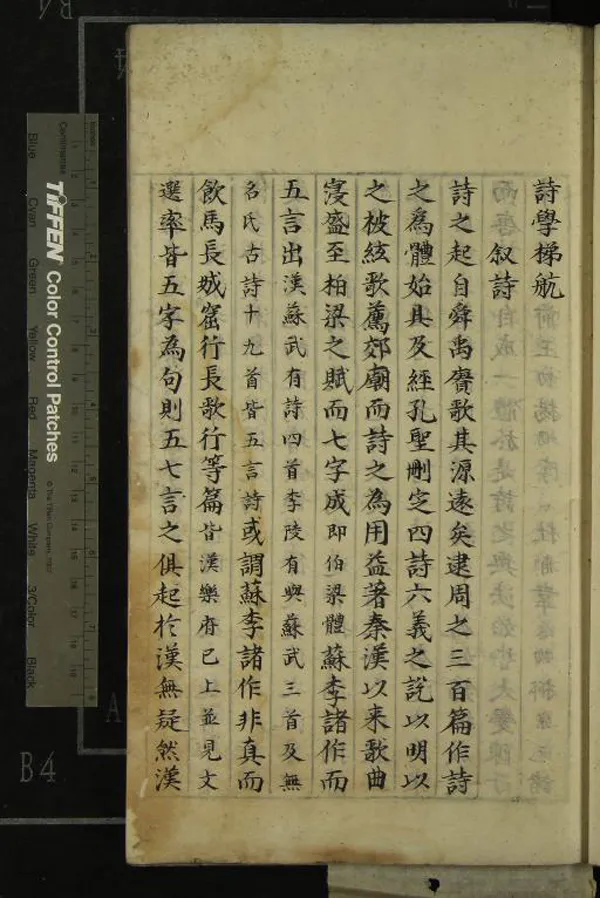 詩學梯航
叙詩
詩之起自舜禹賡歌其源遠矣逮周之三百篇作詩
之爲體始具及經孔聖刪定四詩六義之說以明以
之被絃歌薦郊廟而詩之為用益著秦漢以来歌曲
寖盛至柏梁之賦而七字成即伯梁體蘇李諸作而
五言出漢蘇武有詩四首李陵有與蘇武三首及無
名氏古詩十九首皆五言詩或謂蘇李諸作非真而
飲馬長城窟行長歌行等篇皆漢樂府已上並見文
選率皆五字為句則五七言之俱起於漢無疑然漢
TIFFEN Color Control Patches
© The Tiffen Company, 2007
Centimetres
Inches
Blue
Cyan
Green
Yellow
Red
Magenta
White
3/Color
Black
B4
A